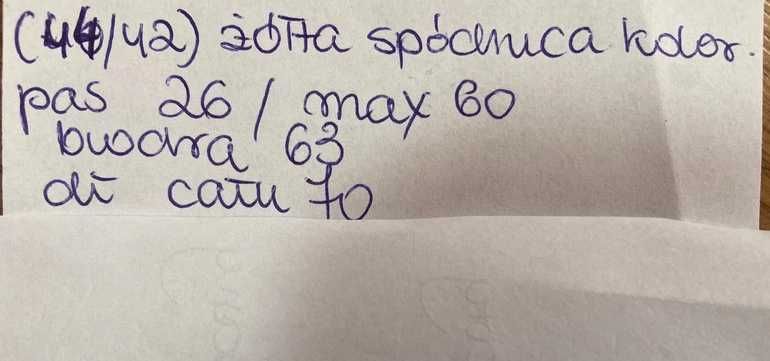 (44/42) żółta spódnica kolor.
pas 26 / max 60
biodra 63
dł całk 70